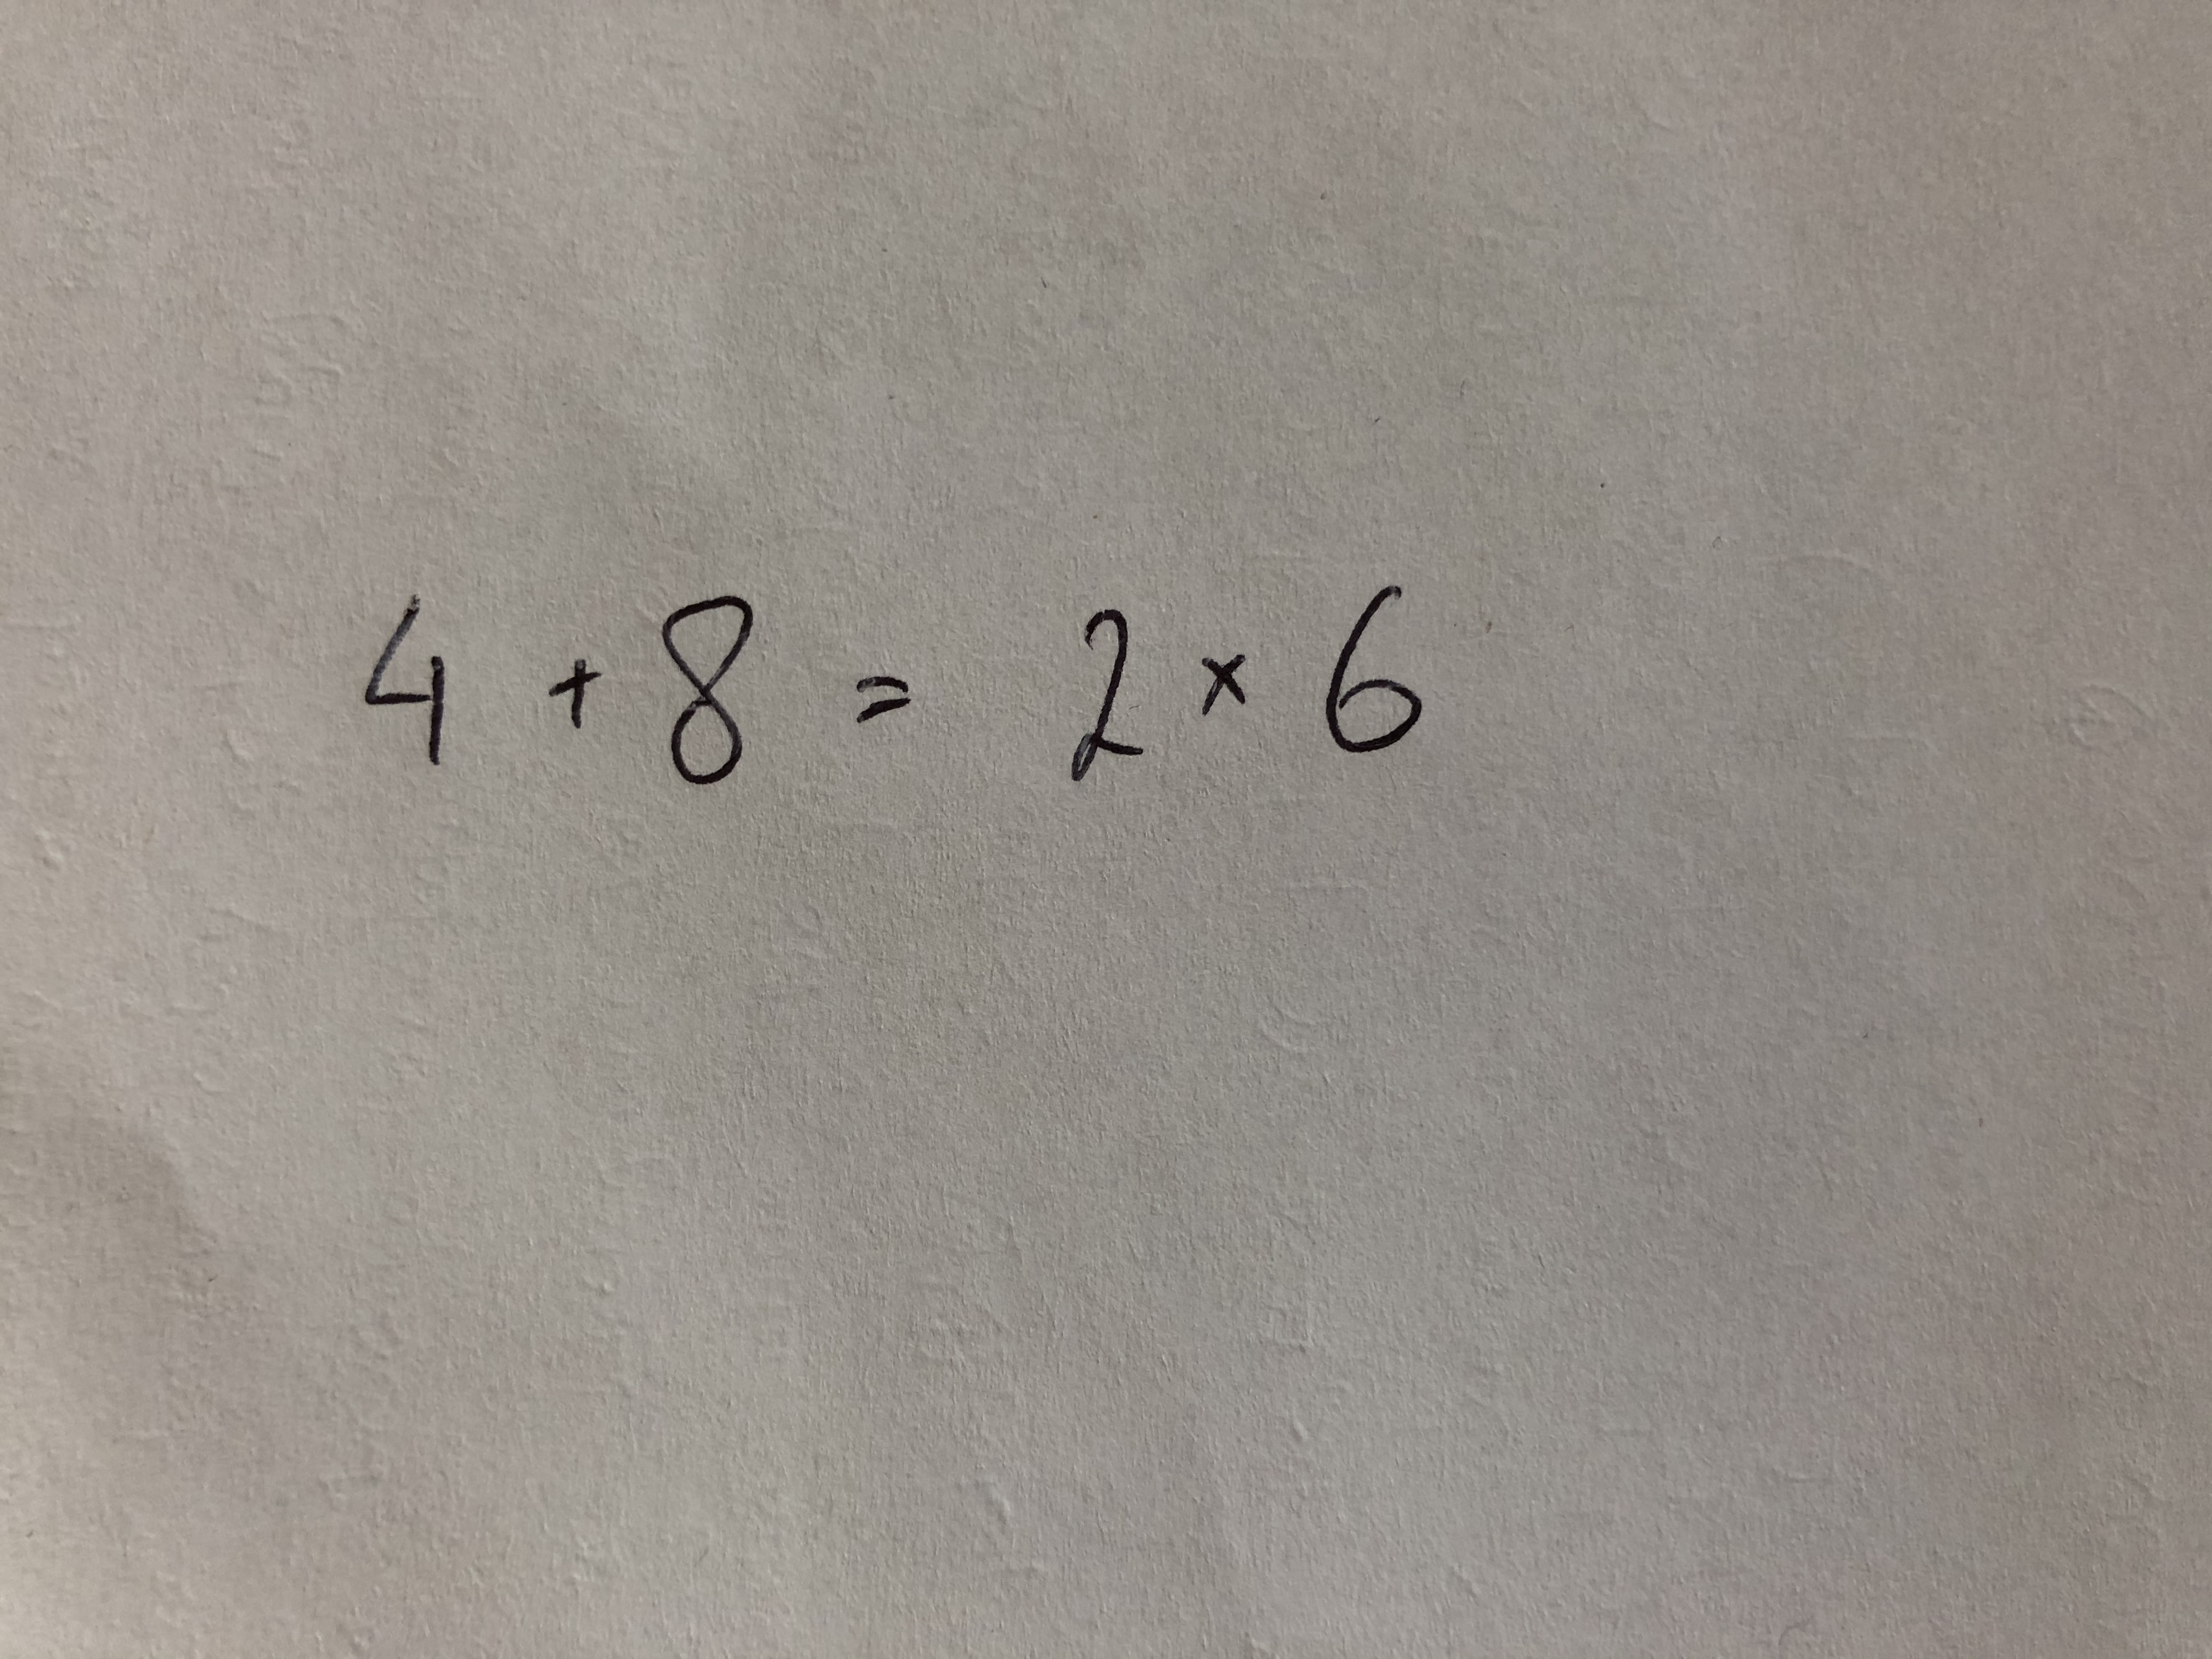 4 + 8 = 2 × 6